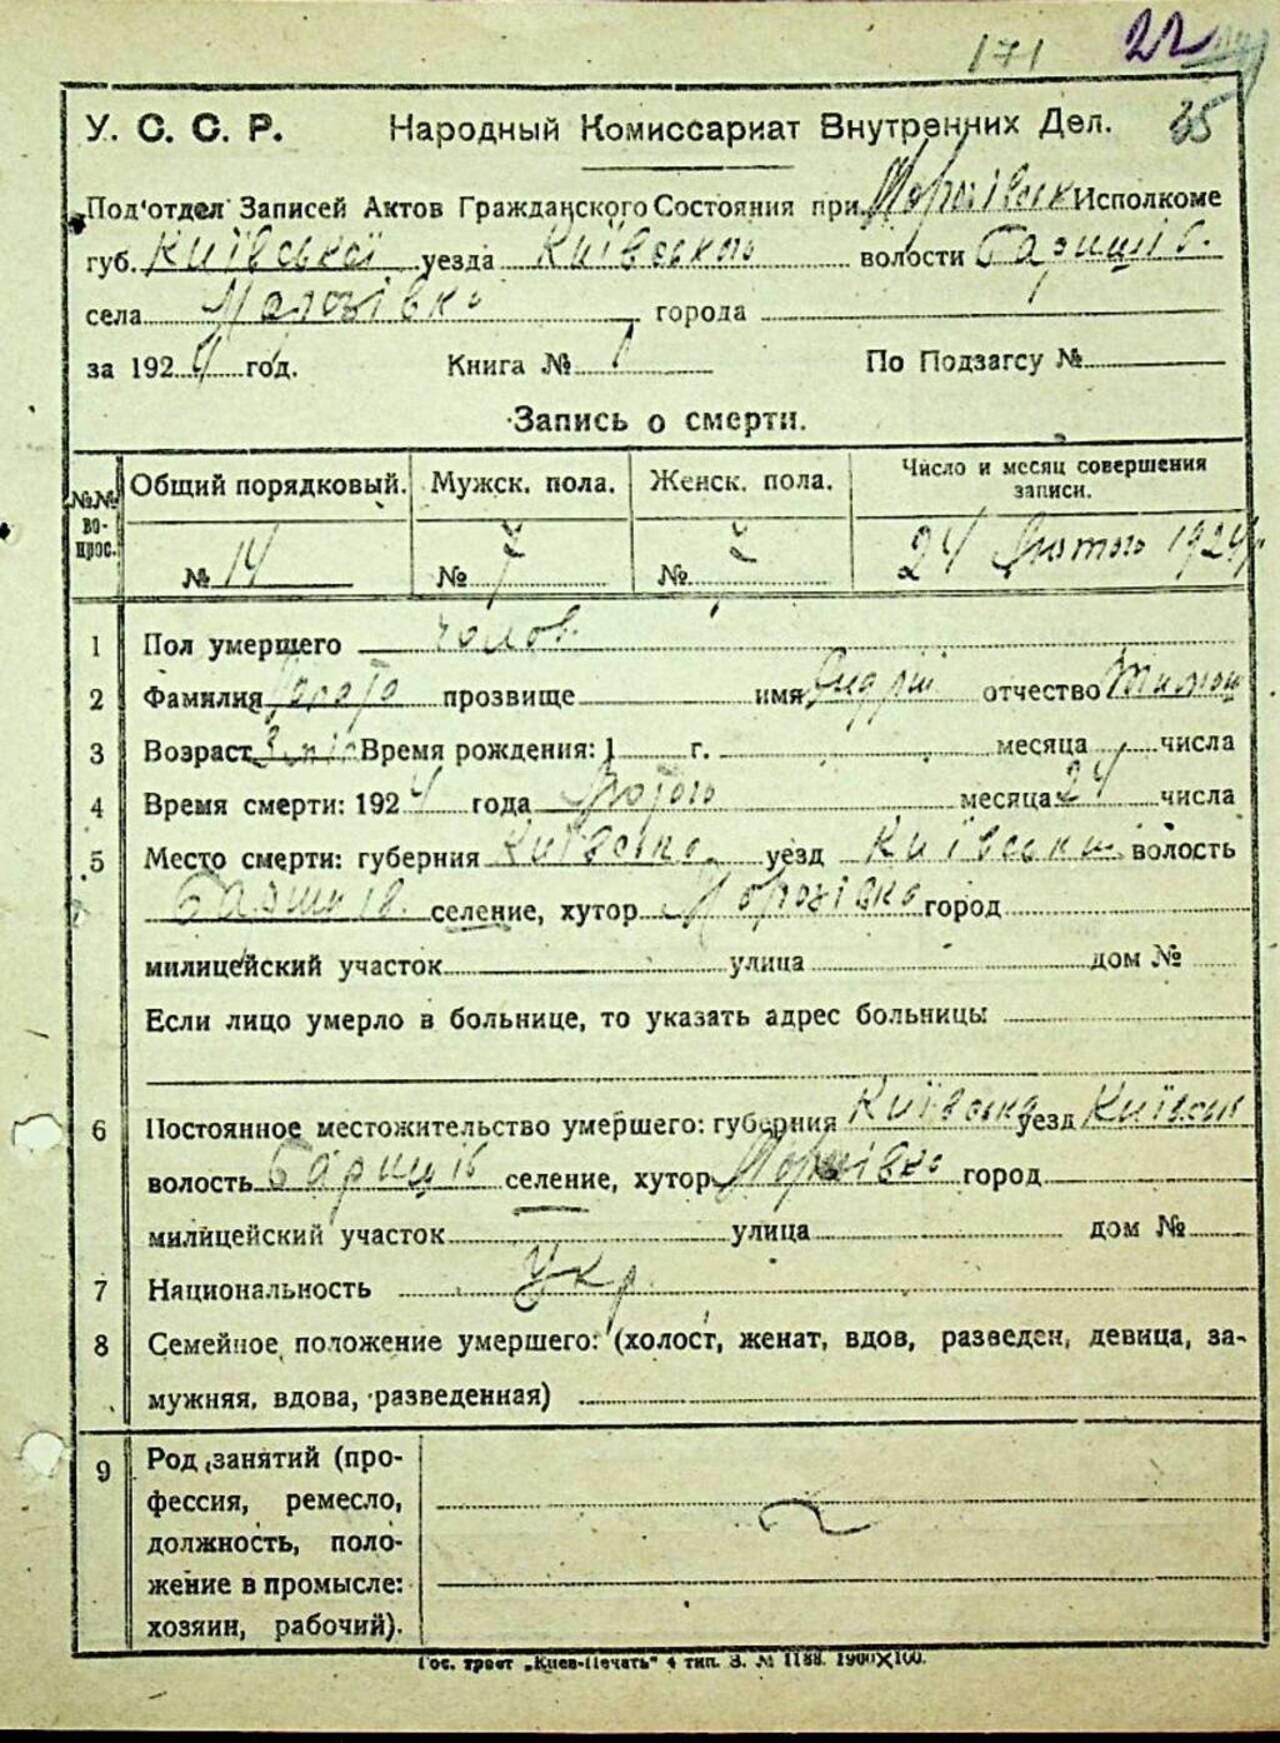 171 22
35
У. С. С. Р. Народный Комиссариат Внутренних Дел.
Под'отдел Записей Актов Гражданского Состояния при Морозівськ Исполкоме
губ. Київської уезда Київського волости Баришів.
села Морозівка города
за 1924 год. Книга № 1 По Подзагсу №
Запись о смерти.
№№ во- прос. Общий порядковый. Мужск. пола. Женск. пола. Число и месяц совершения записи.
№ 14 № 7 № 24 Лютого 1924
1 Пол умершего чолов.
2 Фамилия прозвище имя Андрій отчество Тимош
3 Возраст 3 Время рождения: 1 г. месяца числа
4 Время смерти: 1924 года Лютого месяца 24 числа
5 Место смерти: губерния Київська уезд Київський волость
Баришів. селение, хутор Морозівка город
милицейский участок улица дом №
Если лицо умерло в больнице, то указать адрес больницы
6 Постоянное местожительство умершего: губерния Київська уезд Київськ
волость Баришів селение, хутор Морозівка город
милицейский участок улица дом №
7 Национальность Укр.
8 Семейное положение умершего: (холост, женат, вдов, разведен, девица, за-
мужняя, вдова, разведенная)
9 Род занятий (про-
фессия, ремесло,
должность, поло-
жение в промысле:
хозяин, рабочий).
Гос. трест „Киев-Печать" 4 тип. З. № 1188. 1900×100.